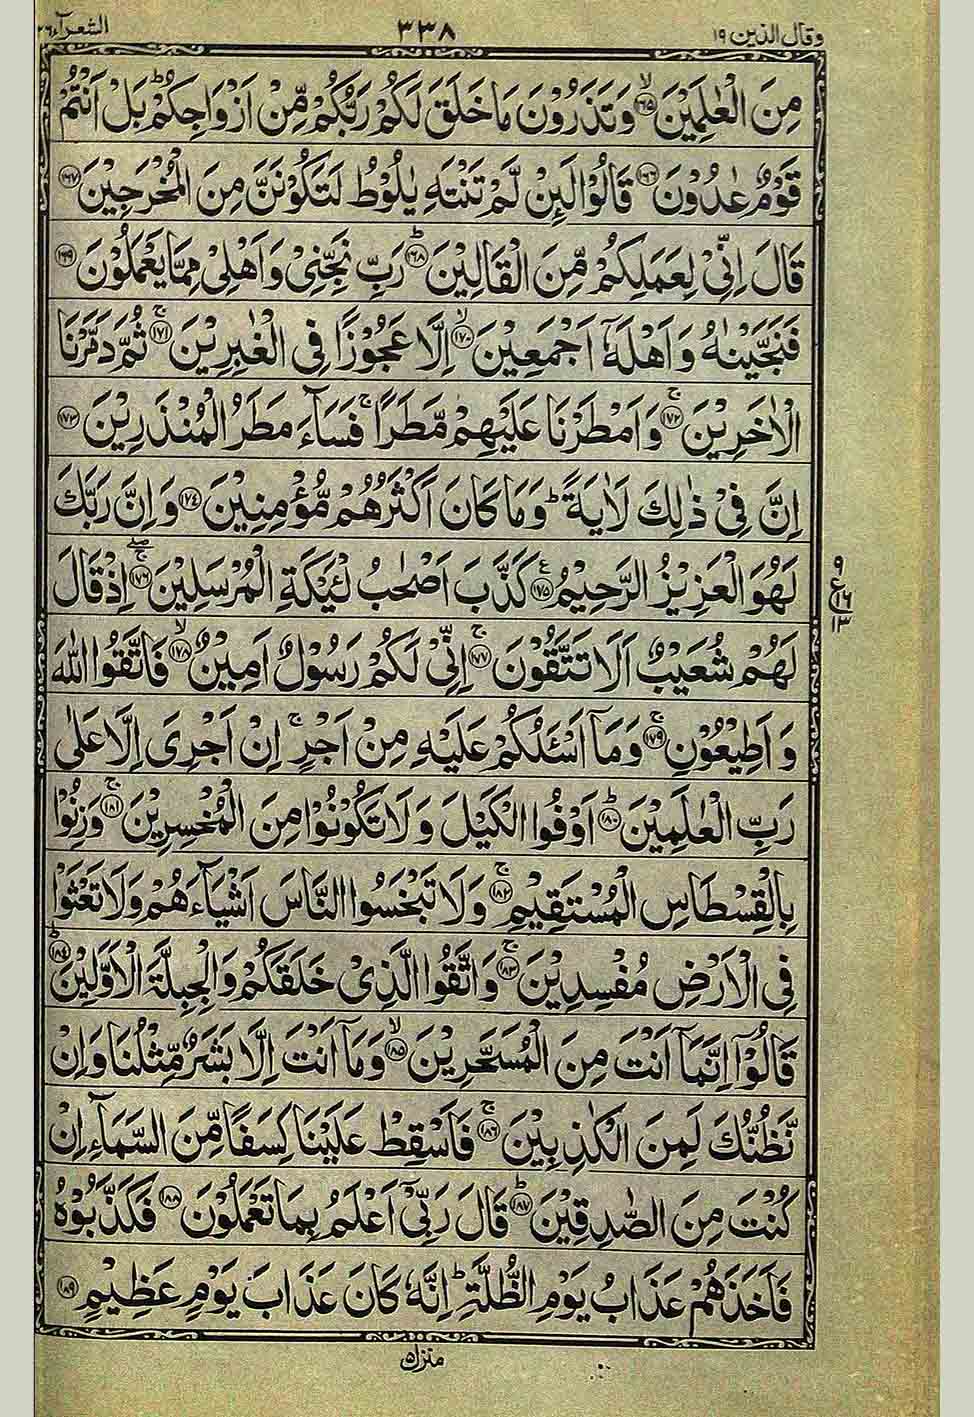 وقال الذین ۱۹ ۳۳۸ الشعرآء ۲۶
مِنَ الْعٰلَمِيْنَ ۙ﴿۱۶۵﴾ وَتَذَرُوْنَ مَا خَلَقَ لَكُمْ رَبُّكُمْ مِّنْ اَزْوَاجِكُمْ ؕ بَلْ اَنْتُمْ
قَوْمٌ عٰدُوْنَ ﴿۱۶۶﴾ قَالُوْا لَئِنْ لَّمْ تَنْتَهِ يٰلُوْطُ لَتَكُوْنَنَّ مِنَ الْمُخْرَجِيْنَ ﴿۱۶۷﴾
قَالَ اِنِّىْ لِعَمَلِكُمْ مِّنَ الْقَالِيْنَ ؕ﴿۱۶۸﴾ رَبِّ نَجِّنِىْ وَاَهْلِىْ مِمَّا يَعْمَلُوْنَ ﴿۱۶۹﴾
فَنَجَّيْنٰهُ وَاَهْلَهٗۤ اَجْمَعِيْنَ ۙ﴿۱۷۰﴾ اِلَّا عَجُوْزًا فِى الْغٰبِرِيْنَ ۚ﴿۱۷۱﴾ ثُمَّ دَمَّرْنَا
الْاٰخَرِيْنَ ۚ﴿۱۷۲﴾ وَاَمْطَرْنَا عَلَيْهِمْ مَّطَرًا ۚ فَسَآءَ مَطَرُ الْمُنْذَرِيْنَ ﴿۱۷۳﴾
اِنَّ فِىْ ذٰلِكَ لَاٰيَةً ؕ وَمَا كَانَ اَكْثَرُهُمْ مُّؤْمِنِيْنَ ﴿۱۷۴﴾ وَاِنَّ رَبَّكَ
لَهُوَ الْعَزِيْزُ الرَّحِيْمُ ﴿۱۷۵﴾ ع كَذَّبَ اَصْحٰبُ لْئَيْكَةِ الْمُرْسَلِيْنَ ۚۖ﴿۱۷۶﴾ اِذْ قَالَ
۹
ع ۱۶
۱۳
لَهُمْ شُعَيْبٌ اَلَا تَتَّقُوْنَ ۚ﴿۱۷۷﴾ اِنِّىْ لَكُمْ رَسُوْلٌ اَمِيْنٌ ۙ﴿۱۷۸﴾ فَاتَّقُوا اللّٰهَ
وَاَطِيْعُوْنِ ۚ﴿۱۷۹﴾ وَمَاۤ اَسْـَٔلُكُمْ عَلَيْهِ مِنْ اَجْرٍ ۚ اِنْ اَجْرِىَ اِلَّا عَلٰى
رَبِّ الْعٰلَمِيْنَ ؕ﴿۱۸۰﴾ اَوْفُوا الْكَيْلَ وَلَا تَكُوْنُوْا مِنَ الْمُخْسِرِيْنَ ۚ﴿۱۸۱﴾ وَزِنُوْا
بِالْقِسْطَاسِ الْمُسْتَقِيْمِ ۚ﴿۱۸۲﴾ وَلَا تَبْخَسُوا النَّاسَ اَشْيَآءَهُمْ وَلَا تَعْثَوْا
فِى الْاَرْضِ مُفْسِدِيْنَ ۚ﴿۱۸۳﴾ وَاتَّقُوا الَّذِىْ خَلَقَكُمْ وَالْجِبِلَّةَ الْاَوَّلِيْنَ ؕ﴿۱۸۴﴾
قَالُوْۤا اِنَّمَاۤ اَنْتَ مِنَ الْمُسَحَّرِيْنَ ۙ﴿۱۸۵﴾ وَمَاۤ اَنْتَ اِلَّا بَشَرٌ مِّثْلُنَا وَاِنْ
نَّظُنُّكَ لَمِنَ الْكٰذِبِيْنَ ۚ﴿۱۸۶﴾ فَاَسْقِطْ عَلَيْنَا كِسَفًا مِّنَ السَّمَآءِ اِنْ
كُنْتَ مِنَ الصّٰدِقِيْنَ ؕ﴿۱۸۷﴾ قَالَ رَبِّىْۤ اَعْلَمُ بِمَا تَعْمَلُوْنَ ﴿۱۸۸﴾ فَكَذَّبُوْهُ
فَاَخَذَهُمْ عَذَابُ يَوْمِ الظُّلَّةِ ؕ اِنَّهٗ كَانَ عَذَابَ يَوْمٍ عَظِيْمٍ ﴿۱۸۹﴾
منزل ۵